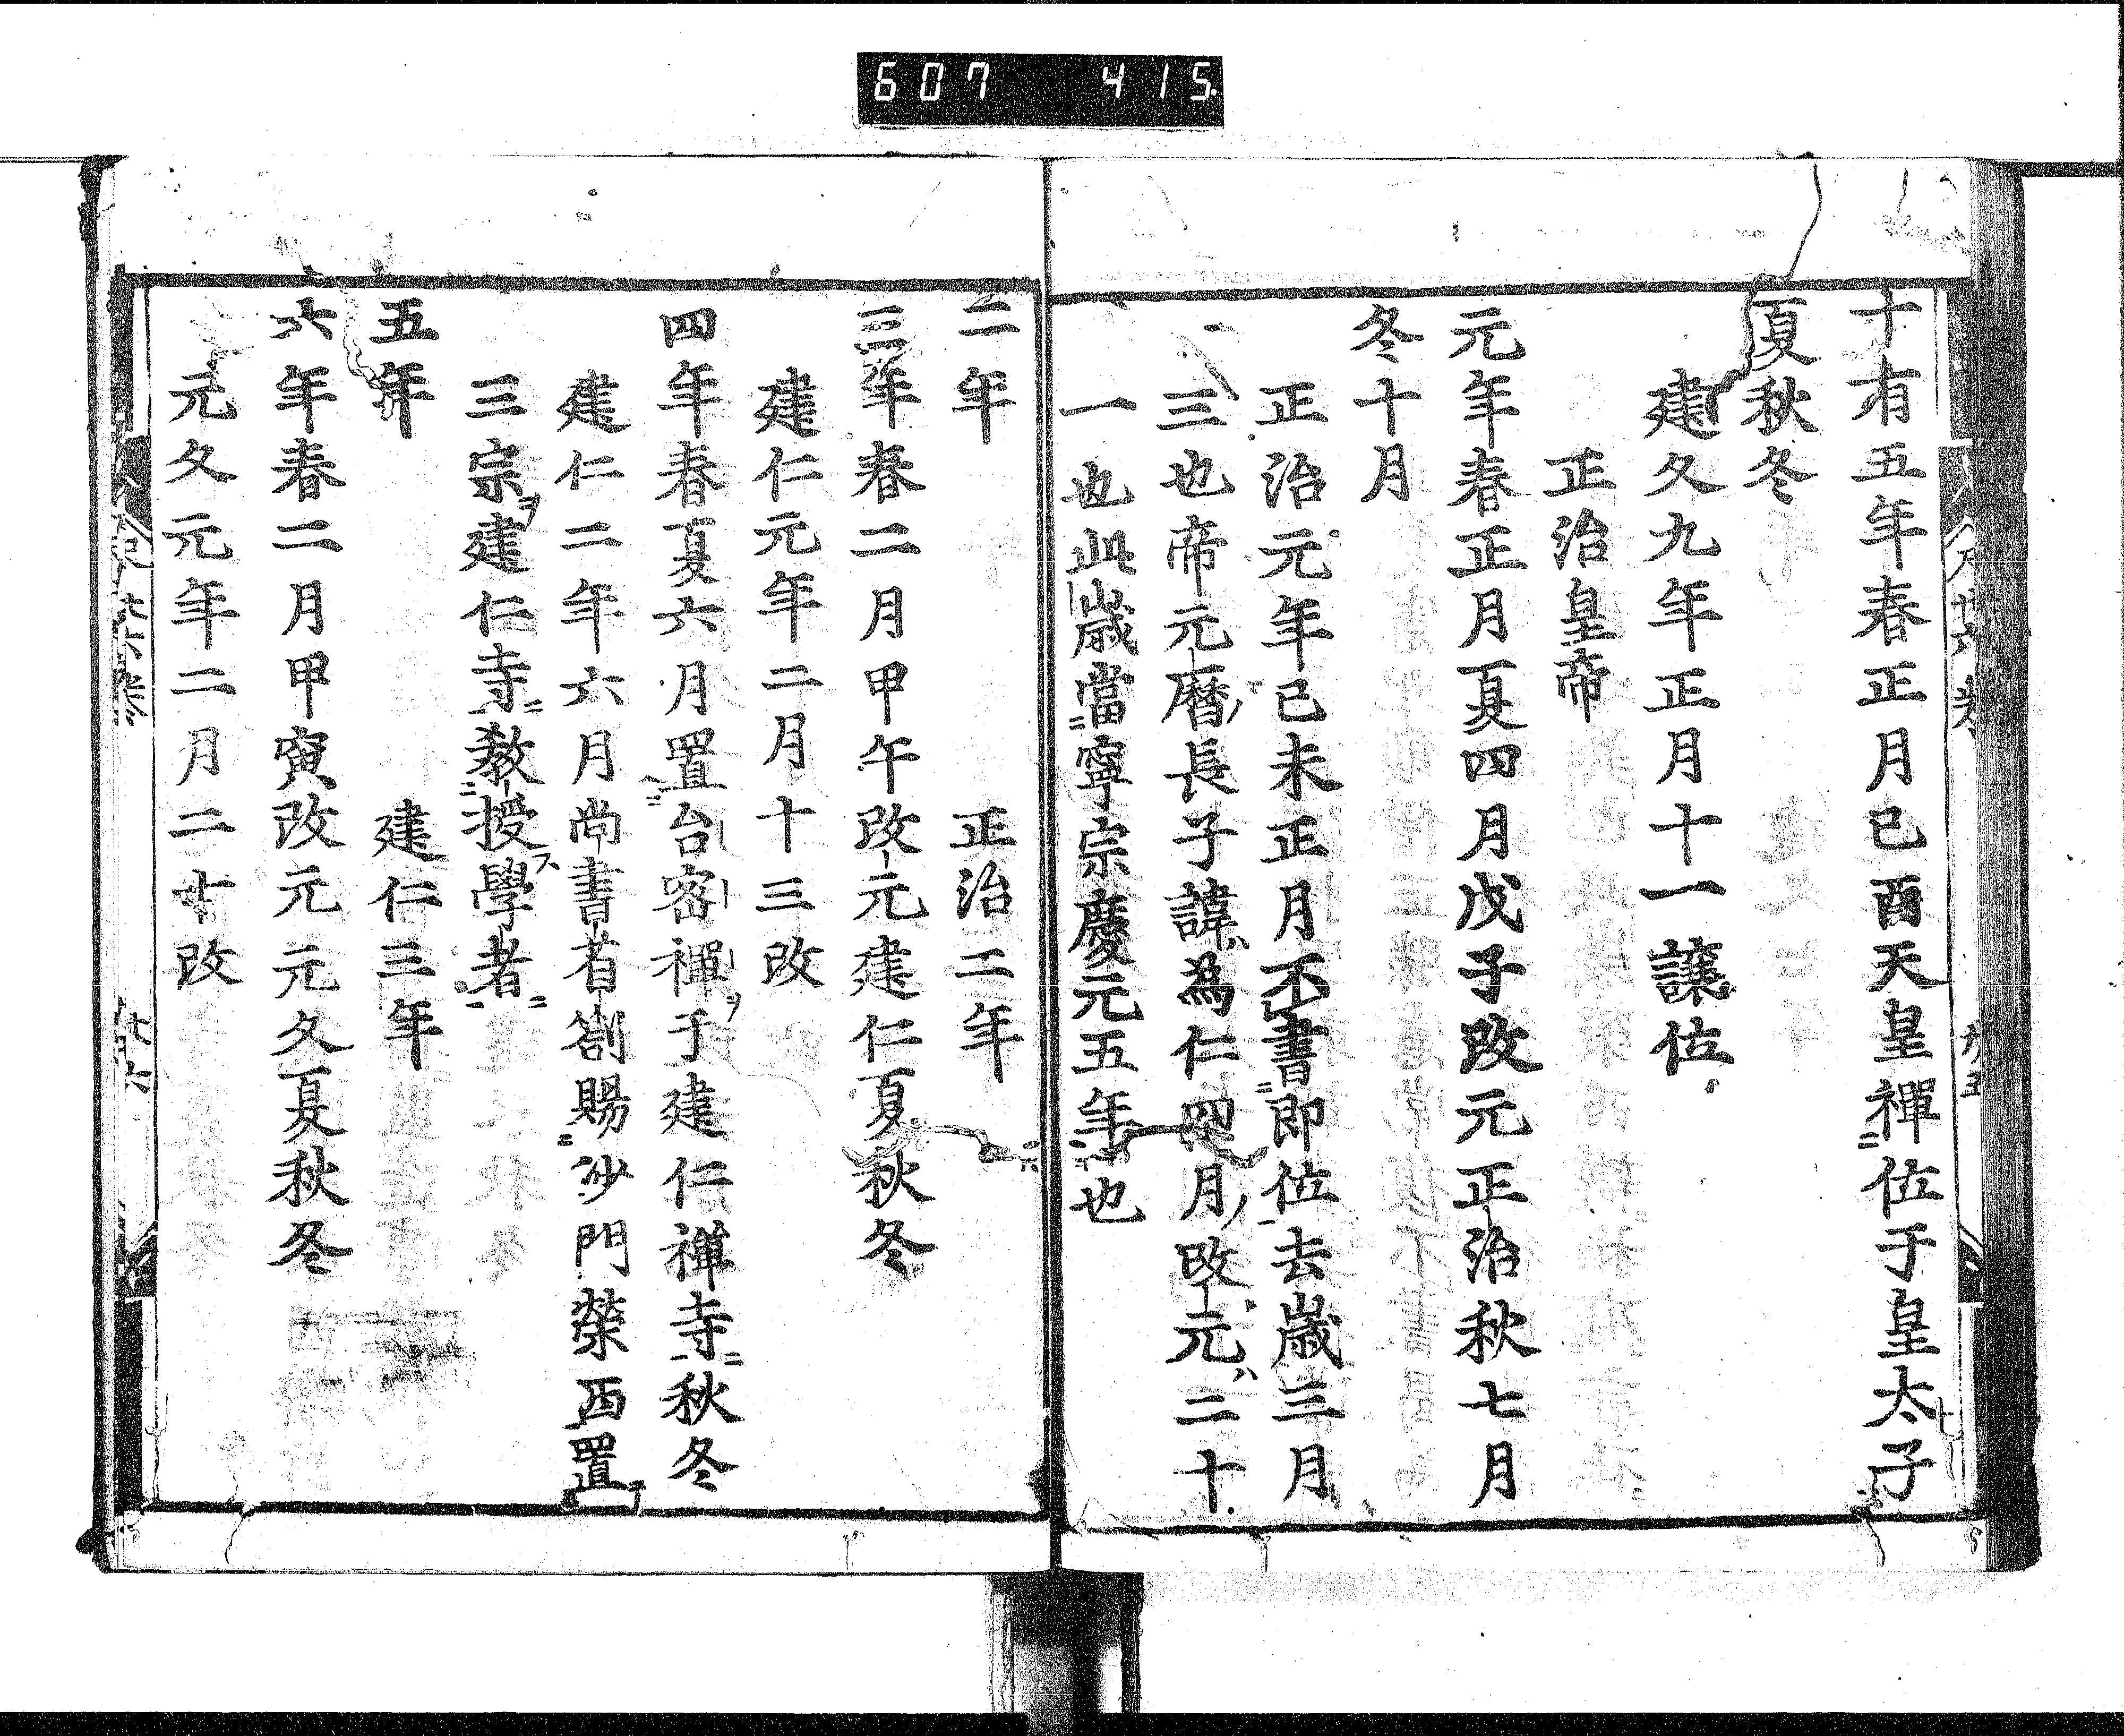 607 415
十有五年春正月己酉天皇禪位于皇太子
夏秋冬
建久九年正月十一讓位
正治皇帝
元年春正月夏四月戊子改元正治秋七月
冬十月
正治元年己未正月不書即位去歲三月
三也帝元曆長子諱為仁四月改元二十
一也此歲當寧宗慶元五年也
二年 正治二年
三年春二月甲午改元建仁夏秋冬
建仁元年二月十三改
四年春夏六月置台密禪于建仁禪寺秋冬
建仁二年六月尚書省劄賜沙門榮西置
三宗建仁寺教授學者
五年 建仁三年
六年春二月甲寅改元元久夏秋冬
元久元年二月二十改